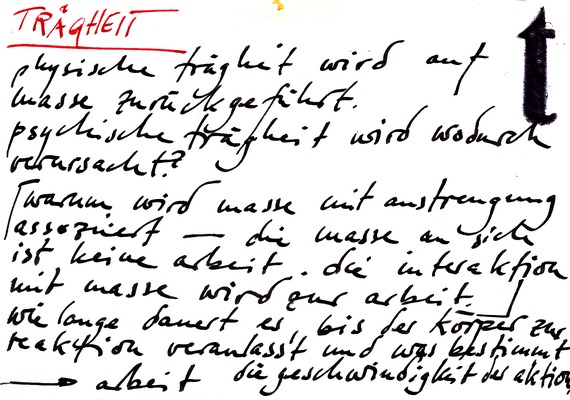 TRÄGHEIT
t
physische trägheit wird auf
masse zurückgeführt.
psychische trägheit wird wodurch
verursacht?
warum wird masse mit anstrengung
assoziiert — die masse an sich
ist keine arbeit. die interaktion
mit masse wird zur arbeit.
wie lange dauert es, bis der körper zur
reaktion veranlasst und was bestimmt
→ arbeit die geschwindigkeit der aktion